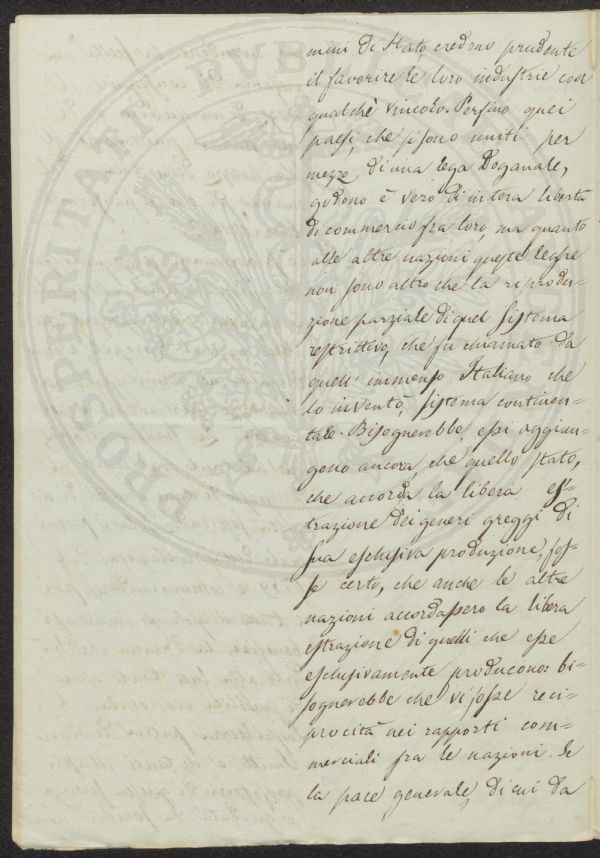 mini di Stato, credono prudente
il favorire le loro industrie con
qualche vincolo. Perfino quei
paesi, che si sono uniti per
mezzo di una lega Doganale,
godono è vero di intera libertà
di commercio fra loro, ma quanto
alle altre nazioni queste leghe
non sono altro che la riprodu=
zione parziale di quel sistema
restrittivo, che fu chiamato da
quell' immenso Italiano che
lo inventò, sistema continen=
tale. Bisognerebbe, essi aggiun=
gono ancora che quello stato,
che accorda la libera es=
trazione dei generi greggi di
sua esclusiva produzione, fos=
se certo, che anche le altre
nazioni accordassero la libera
estrazione di quelli che esse
esclusivamente producono: bi=
sognerebbe che vi fosse reci=
procità nei rapporti com=
merciali fra le nazioni. Se
la pace generale, di cui da
PROSPERITATI PUBLICAE